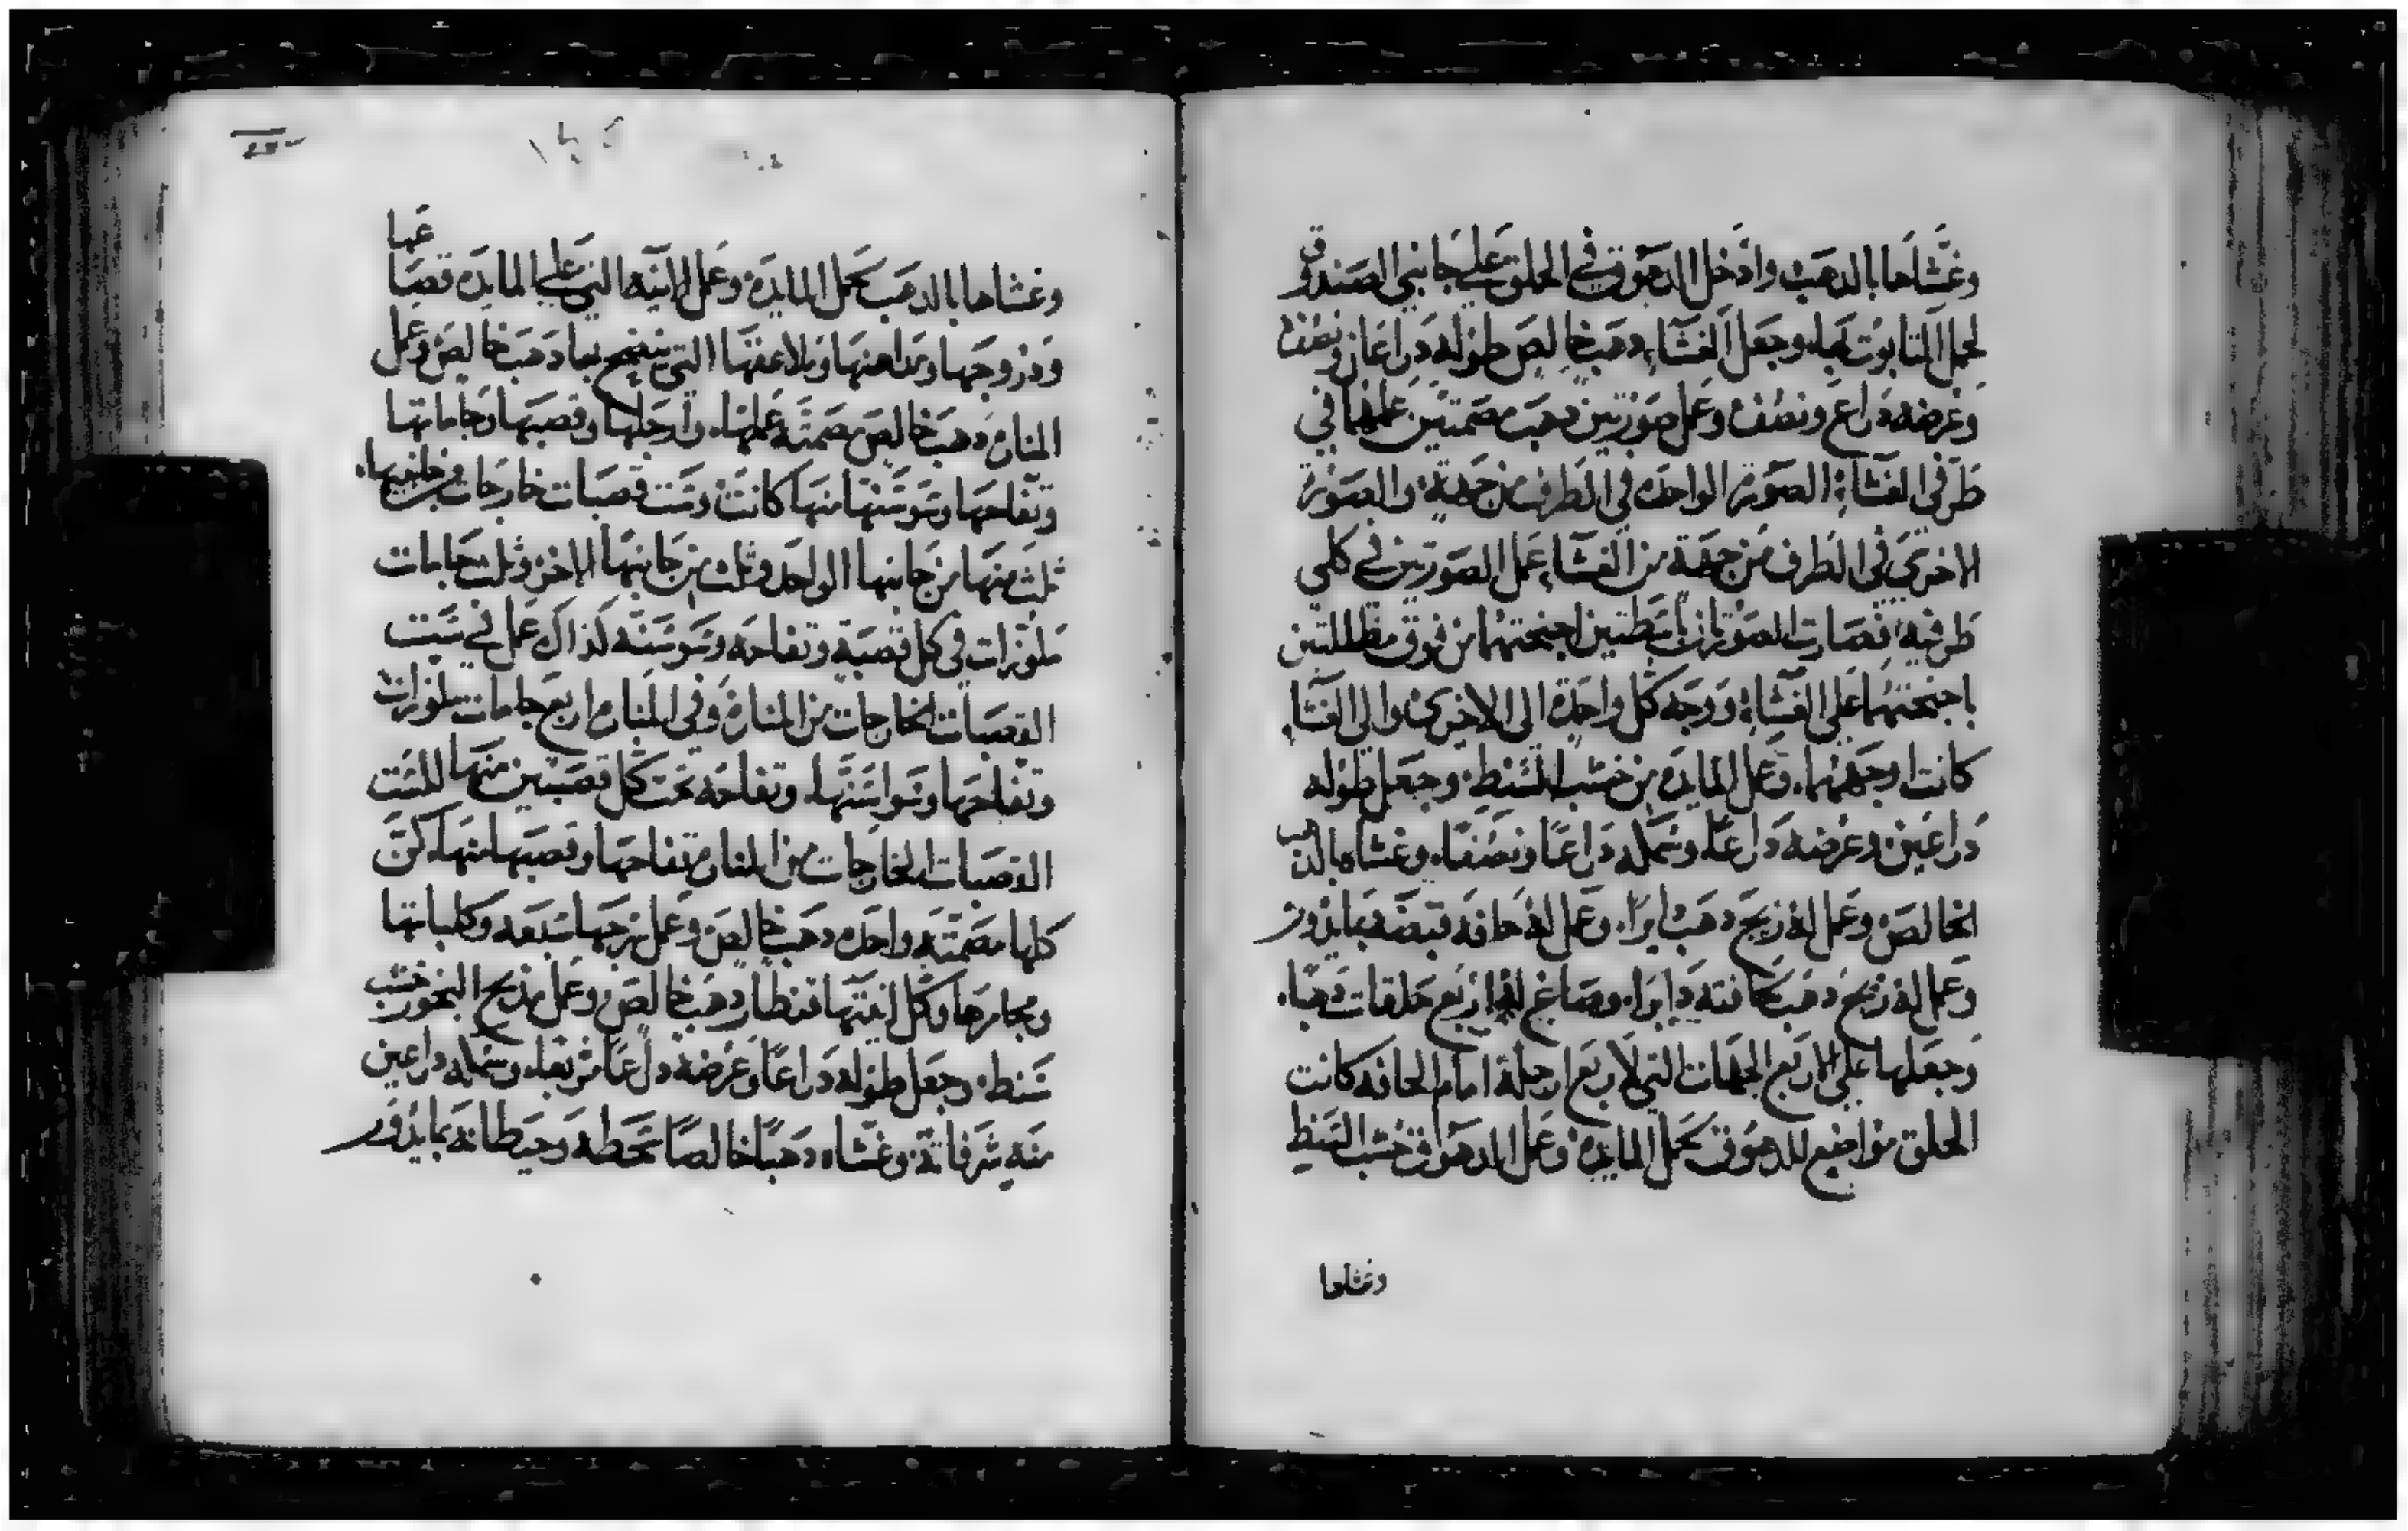 وغشاها بالدهب وادخل الدهوق في الحلق علي جانبي الصندوق
لحمل التابوت بها، وجعل الغشاء دهب خالص طوله دراعان ونصف
وعرضه دراع ونصف وعمل صورتين دهب مصمتتين عملهما في
طرفى الغشاء الصورة الواحده في الطرف من جهة والصورة
الاخرى في الطرف من جهة من الغشاء عمل الصورتين في كلي
طرفيه فصارت الصورتان باسطتين اجنحتهما من فوق مظللتين
باجنحتهما على الغشاء ووجه كل واحدة الى الاخرى والى الغشاء
كانت اوجههما، وعمل المايده من خشب الشنط وجعل طوله
دراعين وعرضه دراعا وسمكه دراعا ونصفا، وغشاه بالدهب
الخالص وعمل له زيج دهب دايرا، وعمل له حافه قبضه بما يدور
وعمل له زيج دهب لحافته دايرا، وصاغ لها اربع حلقات دهبا،
وجعلها على الاربع الجهات التي لاربع ارجله امام الحافه كانت
الحلق مواضع للدهوق لحمل المايده وعمل الدهوق خشب الشنط
وغشاها
وغشاها بالدهب لحمل المايده وعمل الانيه التي على المايده قصاعها
ودروجها ومداهنها وملاعقها التي ينضح بها دهب خالص وعمل
المناره دهب خالص مصمته عملها، وارجلها وقصبها وجاماتها
وتفاحها وسوسنها منها كانت وست قصبات خارجات من جانبيها،
ثلث منها من جانبها الواحد وثلث من جانبها الاخر وثلث جامات
ملوزات في كل قصبة وتفاحه وسوسنه كذاك عمل في ست
القصبات الخارجات من المنارة وفي المناره اربع جامات ملوزات
وتفاحها وسواسنها، وتفاحه تحت كل قصبتين منها للست
القصبات الخارجات من المناره تفاحها وقصبها منها، كن
كلها مصمته واحده دهب خالص وعمل سرجها سبعه وكلباتها
ومجامرها وكل انيتها قنطار دهب خالص وعمل مذبح البخور خشب
شنط وجعل طوله دراعا وعرضه دراعا مربعا، وسمكه دراعين
منه شرفاته وغشاه دهبا خالصا سطحه وحيطانه بما يدور